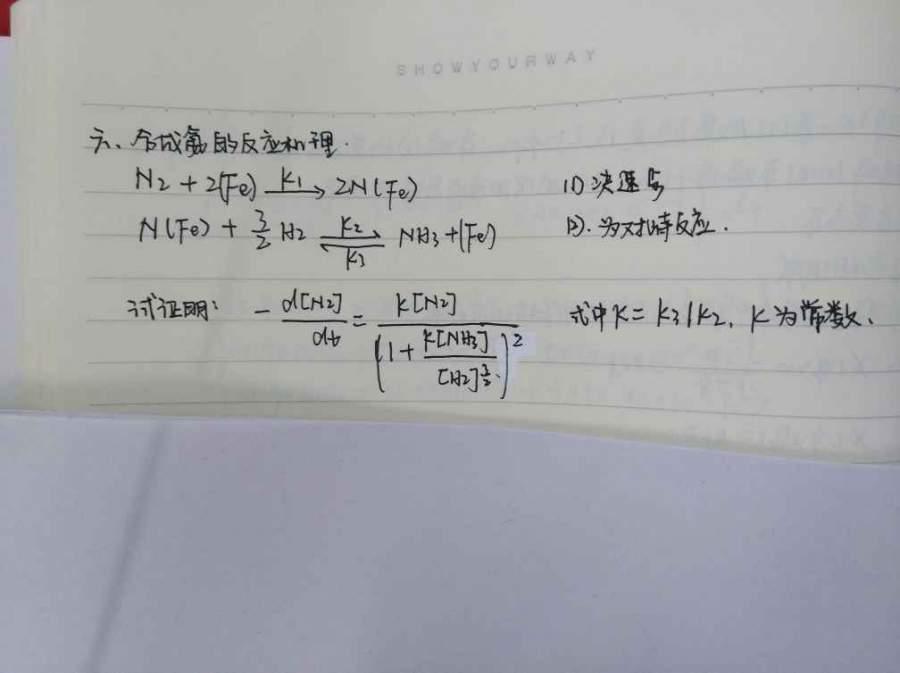 SHOWYOURWAY
六、合成氨的反应机理.
N₂ + 2(Fe) —K₁→ 2N(Fe) (1) 决速步
N(Fe) + 3/2 H₂ ⇌ NH₃ + (Fe) (2). 为对峙反应.
K₂
K₃
试证明: - d[N₂]/dt = K[N₂] / (1 + K[NH₃]/[H₂]^(3/2))² 式中 K = K₃/K₂, K为常数.